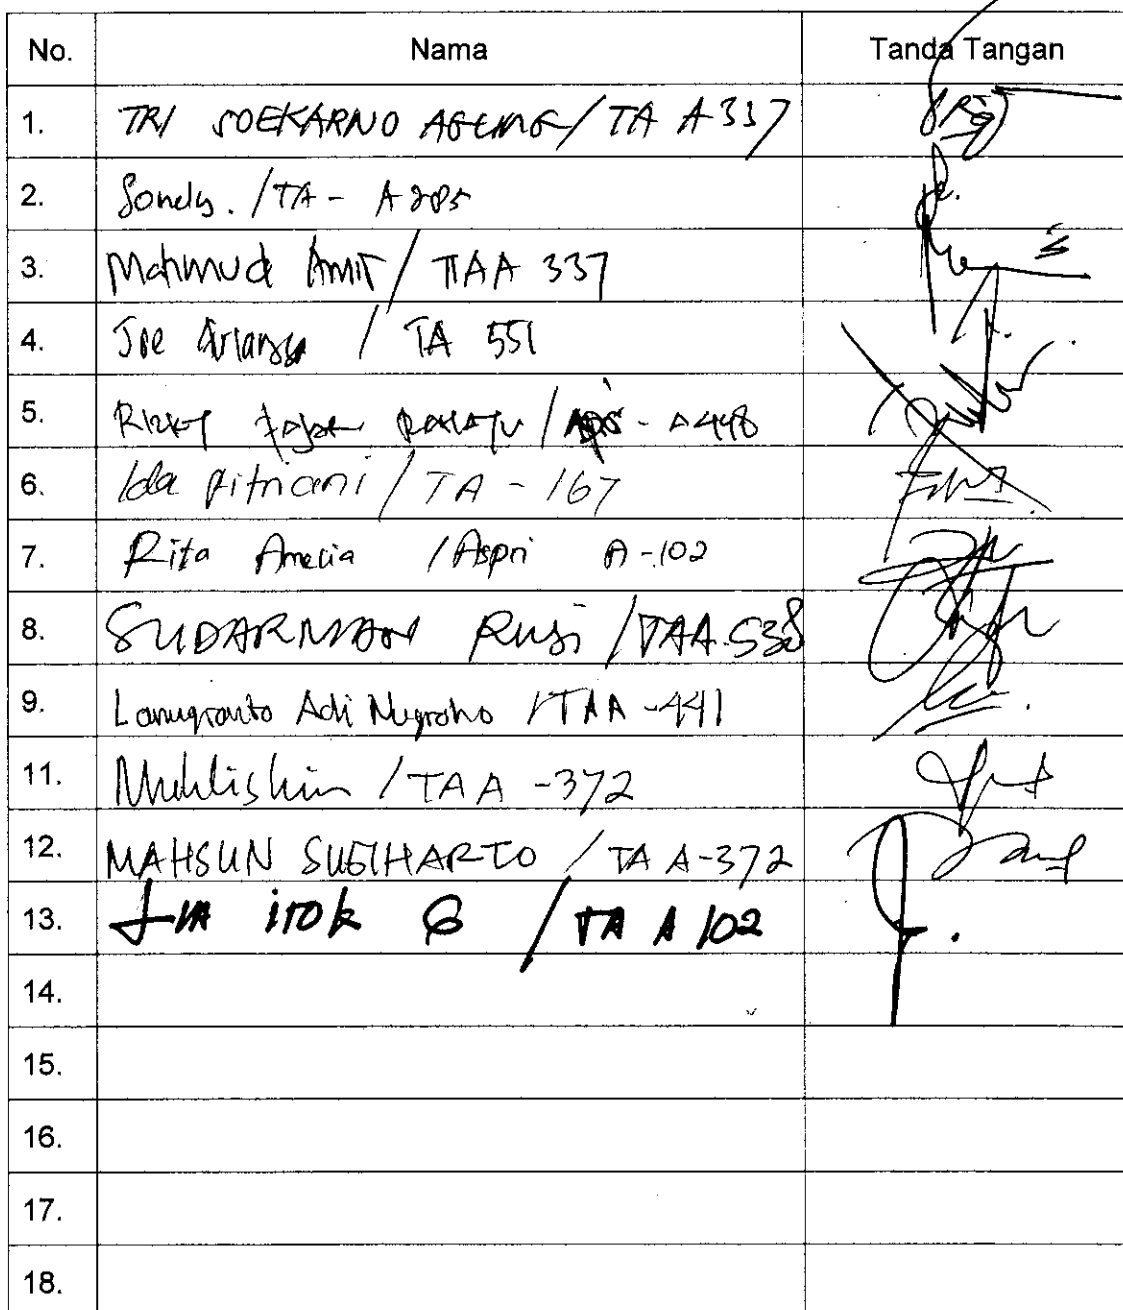 No. Nama Tanda Tangan
1. TRI SOEKARNO AGUNG / TA A 337
2. Sondy. / TA - A 285
3. Mahmud Amir / TAA 337
4. Joe / TA 551
5. Rizky / - A 448
6. Ida Fitriani / TA - 167
7. Rita Amelia / Aspri A - 102
8. SUDARMAN Rusi / TAA 538
9. Adi Nugroho / TAA - 441
11. Mukhlishin / TAA - 372
12. MAHSUN SUGIHARTO / TA A - 372
13. / TA A 102
14.
15.
16.
17.
18.